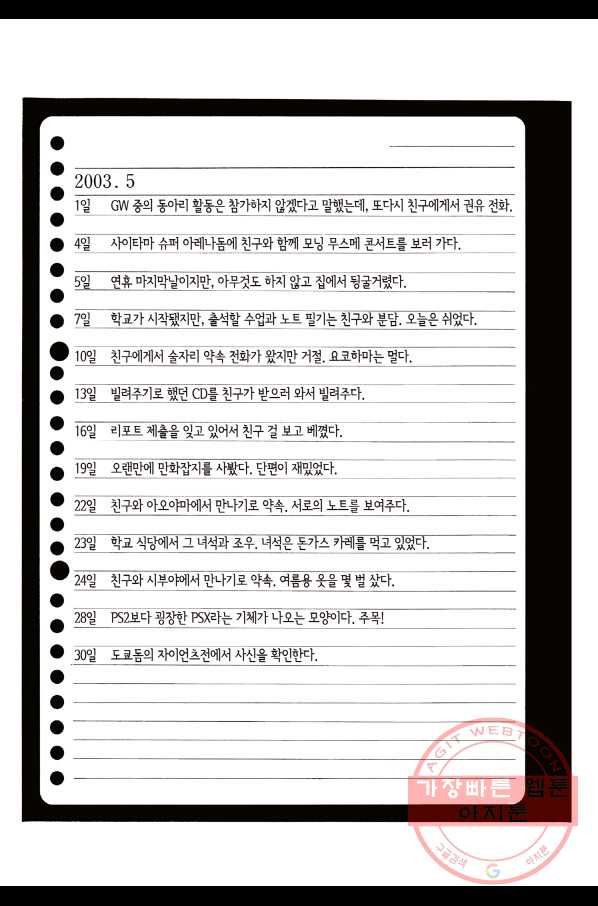 2003. 5
1일 GW 중의 동아리 활동은 참가하지 않겠다고 말했는데, 또다시 친구에게서 권유 전화.
4일 사이타마 슈퍼 아레나돔에 친구와 함께 모닝 무스메 콘서트를 보러 가다.
5일 연휴 마지막날이지만, 아무것도 하지 않고 집에서 뒹굴거렸다.
7일 학교가 시작됐지만, 출석할 수업과 노트 필기는 친구와 분담. 오늘은 쉬었다.
10일 친구에게서 술자리 약속 전화가 왔지만 거절. 요코하마는 멀다.
13일 빌려주기로 했던 CD를 친구가 받으러 와서 빌려주다.
16일 리포트 제출을 잊고 있어서 친구 걸 보고 베꼈다.
19일 오랜만에 만화잡지를 사봤다. 단편이 재밌었다.
22일 친구와 아오야마에서 만나기로 약속. 서로의 노트를 보여주다.
23일 학교 식당에서 그 녀석과 조우. 녀석은 돈가스 카레를 먹고 있었다.
24일 친구와 시부야에서 만나기로 약속. 여름용 옷을 몇 벌 샀다.
28일 PS2보다 굉장한 PSX라는 기체가 나오는 모양이다. 주목!
30일 도쿄돔의 자이언츠전에서 사신을 확인한다.
AGIT WEBTOON
가장빠른 웹툰
아지툰
구글검색 G 아지툰